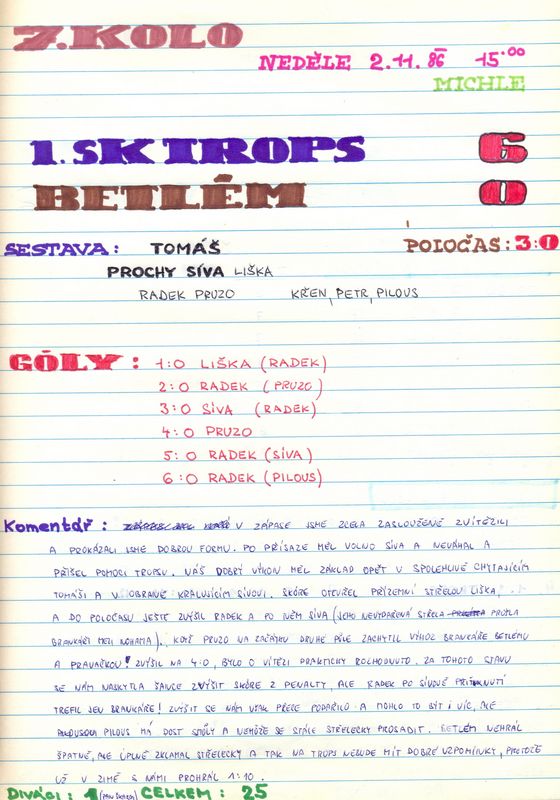 7. KOLO
NEDĚLE 2.11.86 15.00
MICHLE
1. SK TROPS 6
BETLÉM 0
SESTAVA: TOMÁŠ POLOČAS: 3:0
PROCHY SÍVA LIŠKA
RADEK PRUZO KŘEN, PETR, PILOUS
GÓLY: 1:0 LIŠKA (RADEK)
2:0 RADEK (PRUZO)
3:0 SÍVA (RADEK)
4:0 PRUZO
5:0 RADEK (SÍVA)
6:0 RADEK (PILOUS)
Komentář: V ZÁPASE JSME ZCELA ZASLOUŽENĚ ZVÍTĚZILI
A PROKÁZALI JSME DOBROU FORMU. PO PŘÍSAZE MĚL VOLNO SÍVA A NEVÁHAL A
PŘIŠEL POMOCI TROPSU. NÁŠ DOBRÝ VÝKON MĚL ZÁKLAD OPĚT V SPOLEHLIVĚ CHYTAJÍCÍM
TOMÁŠI A V OBRANĚ KRALUJÍCÍM SÍVOVI. SKÓRE OTEVŘEL PŘÍZEMNÍ STŘELOU LIŠKA,
A DO POLOČASU JEŠTĚ ZVÝŠIL RADEK A PO NĚM SÍVA (JEHO NEVYDAŘENÁ STŘELA PROŠLA
BRANKÁŘI MEZI NOHAMA). KDYŽ PRUZO NA ZAČÁTKU DRUHÉ PŮLE ZACHYTIL VÝHOZ BRANKÁŘE BETLÉMU
A PRAVAČKOU! ZVÝŠIL NA 4:0, BYLO O VÍTĚZI PRAKTICKY ROZHODNUTO. ZA TOHOTO STAVU
SE NÁM NASKYTLA ŠANCE ZVÝŠIT SKÓRE Z PENALTY, ALE RADEK PO SÍVOVĚ PŘIŤUKNUTÍ
TREFIL JEN BRANKÁŘE! ZVÝŠIT SE NÁM VŠAK PŘECE PODAŘILO A MOHLO TO BÝT I VÍC, ALE
PILOUS MÁ DOST SMŮLY A NEMŮŽE SE STÁLE STŘELECKY PROSADIT. BETLÉM NEHRÁL
ŠPATNĚ, ALE ÚPLNĚ ZKLAMAL STŘELECKY A TAK NA TROPS NEBUDE MÍT DOBRÉ VZPOMÍNKY, PROTOŽE
UŽ V ZIMĚ S NÁMI PROHRÁL 1:10.
DIVÁCI: 1 CELKEM: 25